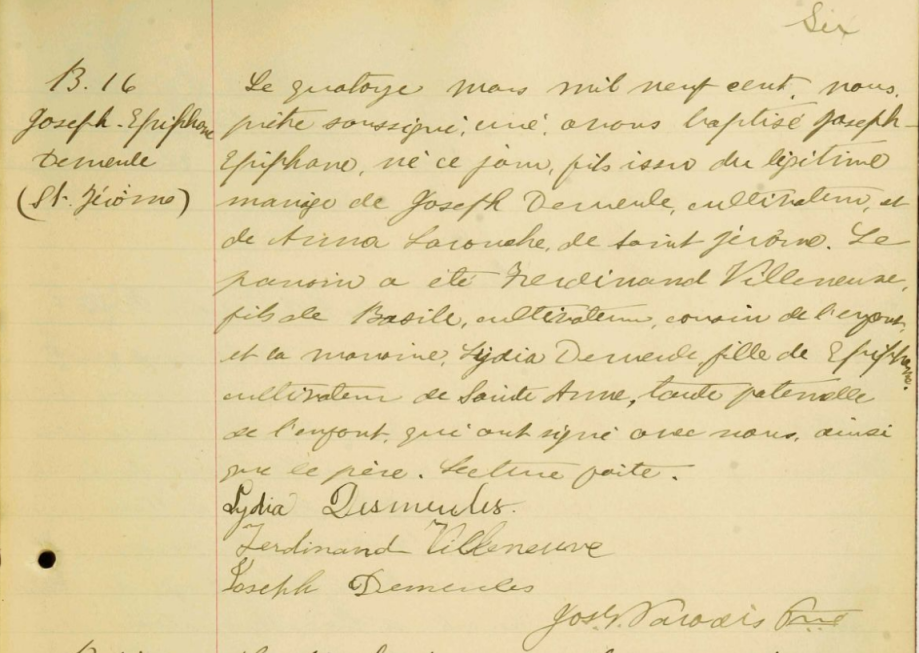 Six
B. 16
Joseph-Epiphane
Demeule
(St. Jérôme)
Le quatorze mars mil neuf cent, nous,
prêtre soussigné, curé, avons baptisé Joseph-
Epiphane, né ce jour, fils issu du légitime
mariage de Joseph Demeule, cultivateur, et
de Anna Larouche, de Saint Jérôme. Le
parrain a été Ferdinand Villeneuve,
fils de Basile, cultivateur, cousin de l'enfant,
et la marraine, Lydia Demeule, fille de Epiphane,
cultivateur de Sainte Anne, tante paternelle
de l'enfant, qui ont signé avec nous, ainsi
que le père. Lecture faite.
Lydia Desmeules.
Ferdinand Villeneuve
Joseph Demeules
Jos. Paradis Ptre